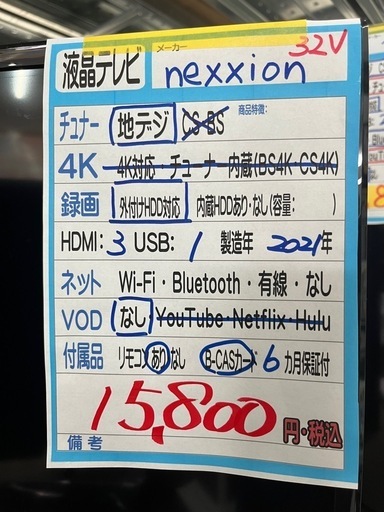 32V
液晶テレビ
メーカー
nexxion
商品特徴:
チュナー 地デジ CS・BS
4K 4K対応・チューナー内蔵(BS4K・CS4K)
録画 外付けHDD対応 内蔵HDDあり・なし(容量: )
HDMI: 3 USB: 1 製造年 2021年
ネット Wi-Fi・Bluetooth・有線・なし
VOD なし・YouTube・Netflix・Hulu
付属品 リモコンあり なし B-CASカード 6カ月保証付
15,800円・税込
備考